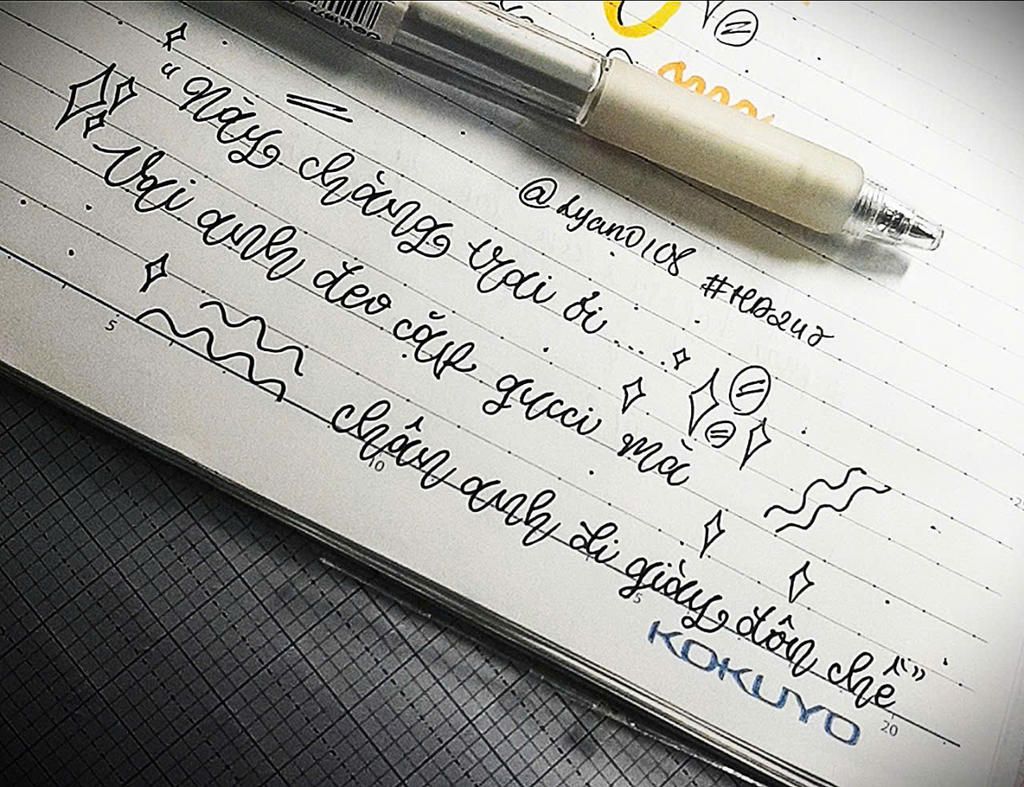 @lyano108 #HD247
"Này chàng trai ơi ....
Vai anh đeo cặp gucci mà
chân anh đi giày đôn chề"
KOKUYO
5
10
5
20